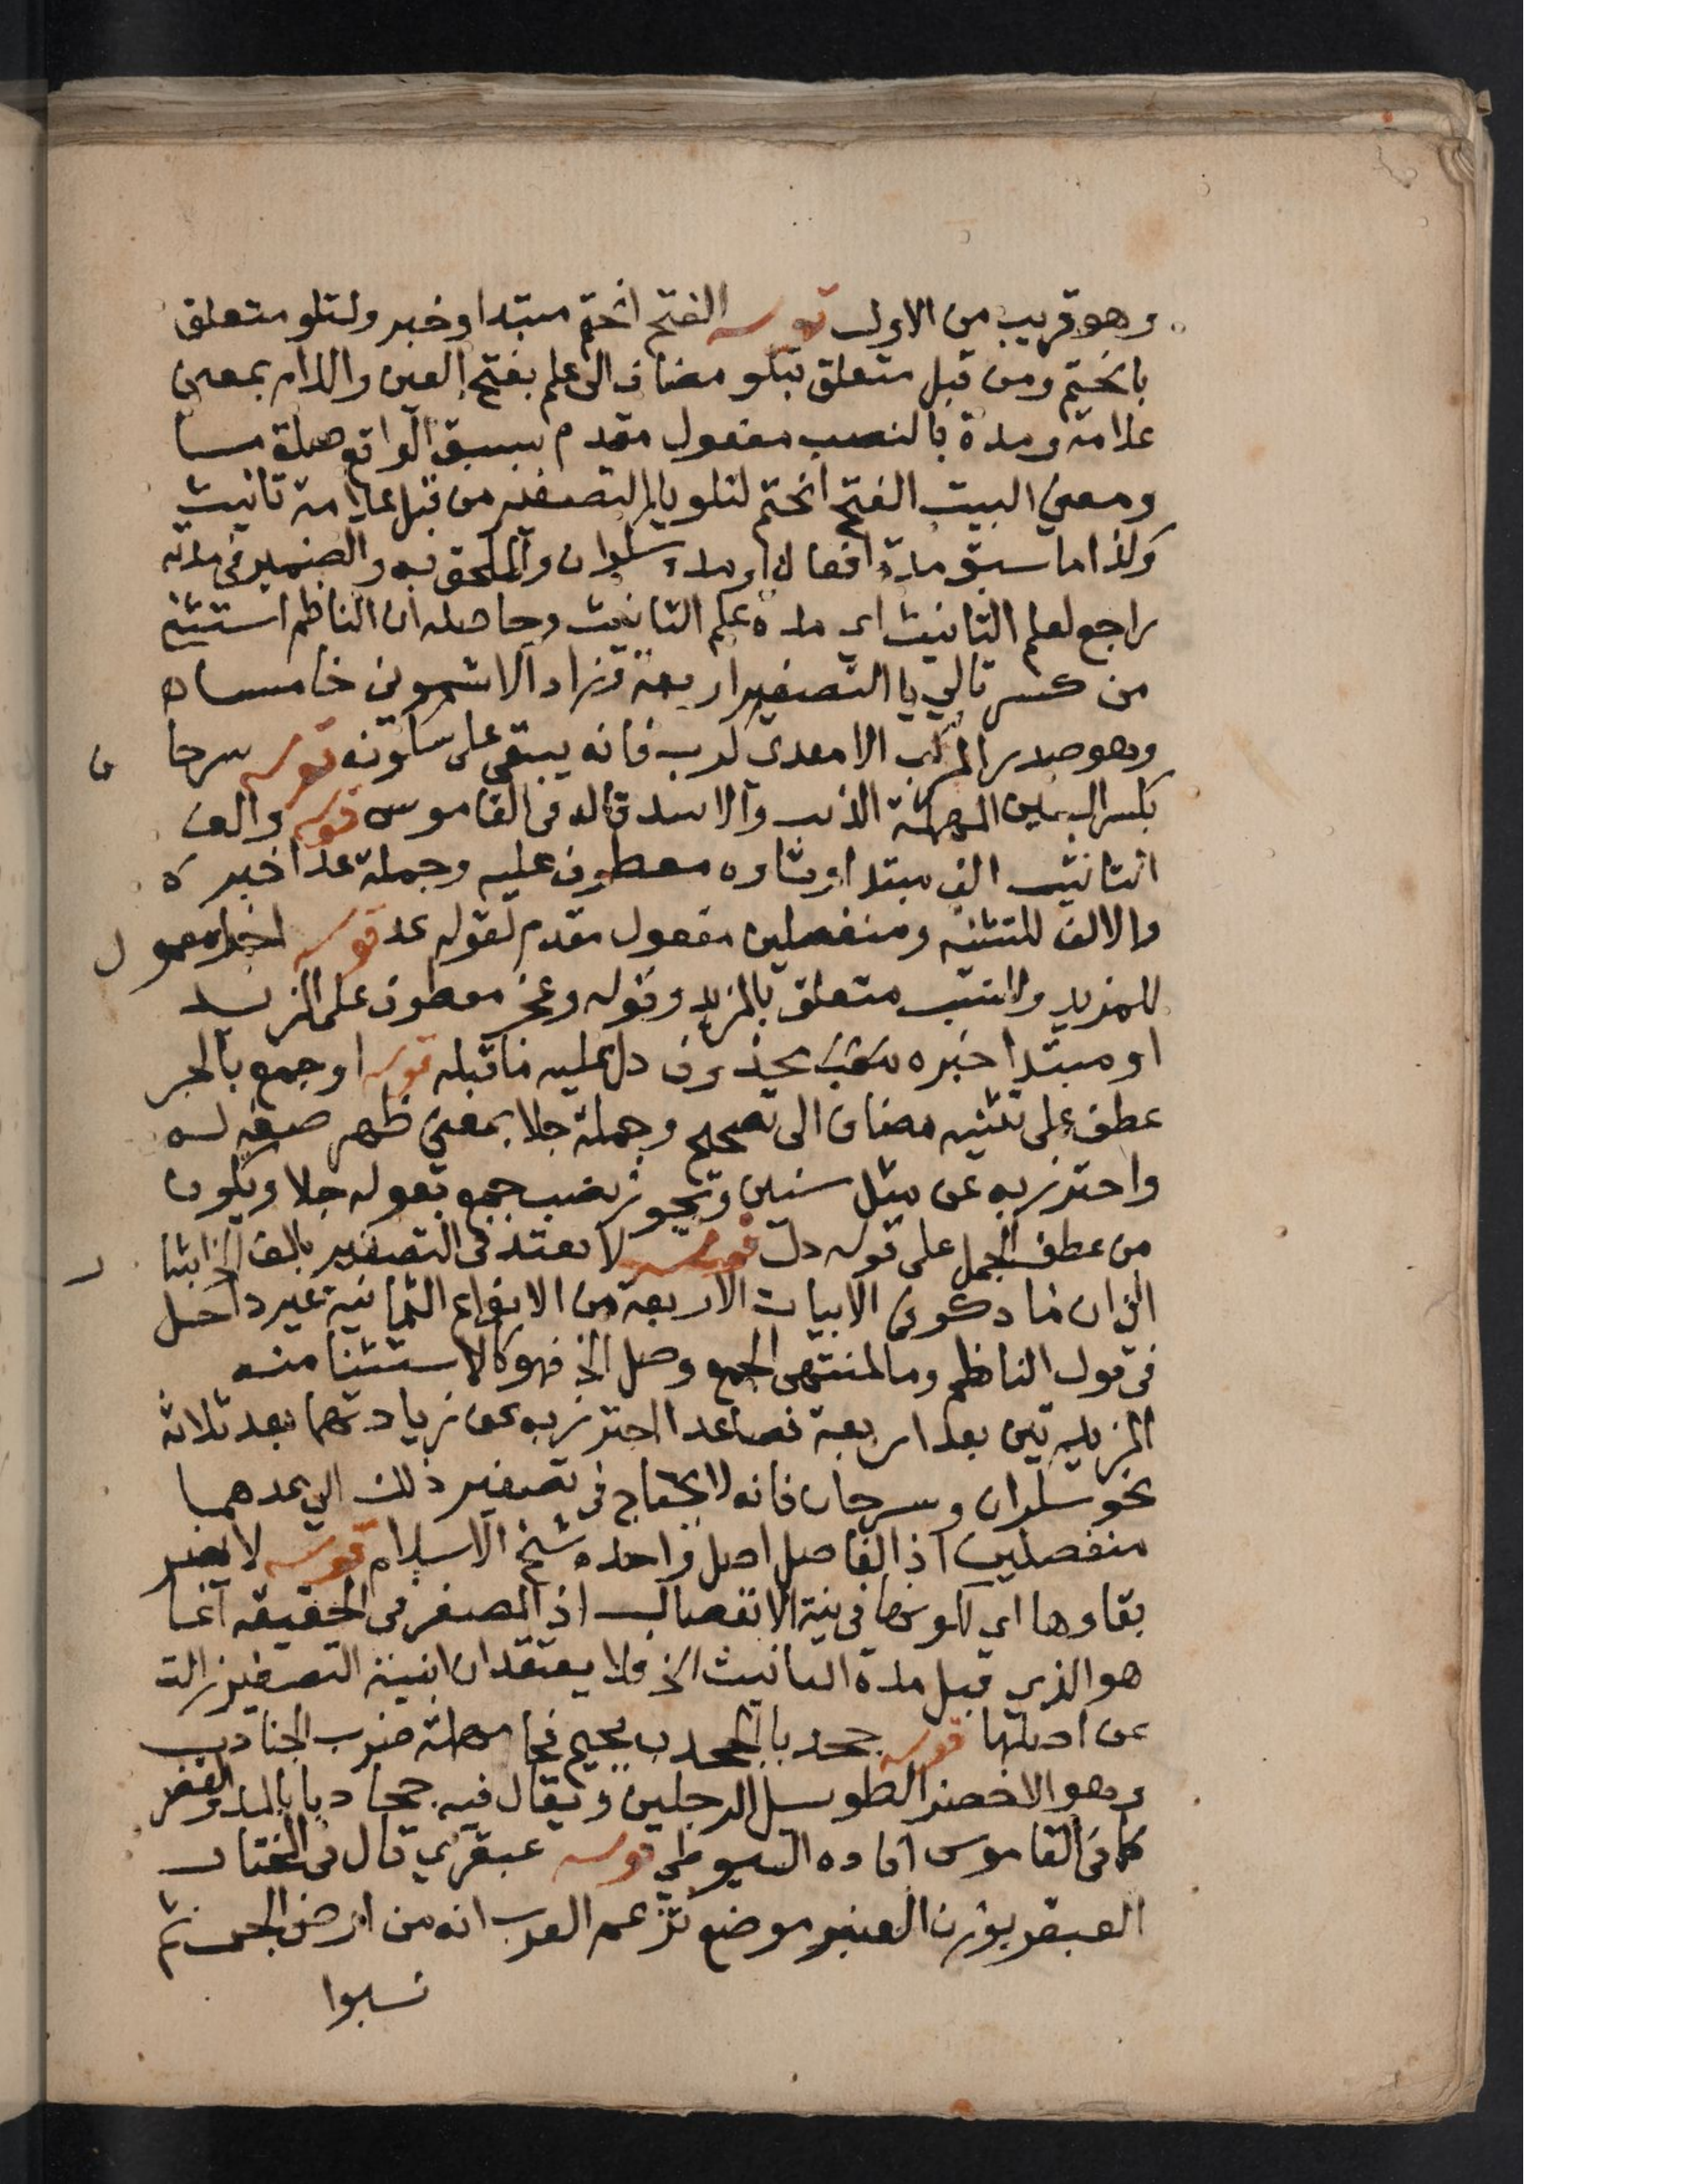 وهو قريب من الاول قوله الفتح انحتم مبتدا وخبر ولتلو متعلق
بانحتم ومن قبل متعلق بتلو مضاف الى علم بفتح العين واللام بمعنى
علامة ومدة بالنصب مفعول مقدم بسبق الواقع صلة ما
ومعنى البيت الفتح انحتم لتلو يا التصغير من قبل علامة تانيث
وكذا ما سبق مدة افعال او مد سكران والملحق به والضمير في مدته
راجع لعلم التانيث اي مدة علم التانيث وحاصله ان الناظم استثنى
من كسر تالي يا التصغير اربعة وزاد الاشموني خامسا
وهو صدر المركب الا معدي كرب فانه يبقى على سكونه قوله سرحان
بكسر السين المهملة الذئب والاسد قاله في القاموس قوله والف
التانيث الف مبتدا وتاوه معطوف عليه وجملة عدا خبره
والالف للتثنية ومنفصلين مفعول مقدم لقوله عد قوله اخرا معمول
للمزيد وللنسب متعلق بالمزيد وقوله وعجز معطوف على المزيد
او مبتدا خبره محذوف دل عليه ما قبله قوله او جمع بالجر
عطف على تثنية مضاف الى تصحيح وجملة جلا بمعنى ظهر صفة له
واحترز به عن مثل سنين ويجوز نصب جمع بقوله جلا ويكون
من عطف الجمل على قوله دل قوله لا يعتد في التصغير بالف التانيث
الخ ان ما ذكر في الابيات الاربعة من الانواع الثمانية غير داخل
في قول الناظم وما لمنتهى الجمع وصل الخ فهو كالاستثنا منه
المزيدتين بعد اربعة فصاعدا احترز به عن زيادتهما بعد ثلاثة
نحو سكران وسرحان فانه لا يحتاج في تصغير ذلك الى عدهما
منفصلين اذ الفاصل اصل واحد ه شيخ الاسلام قوله لا يضر
بقاوها اي لكونها في نية الانفصال اذ المصغر في الحقيقة انما
هو الذي قبل مدة التانيث الخ فلا يعتقد ان ابنية التصغير زالت
عن اصلها قوله جحدبا الجحدب بجيم فحا مهملة ضرب الجنادب
وهو الاخضر الطويل الرجلين ويقال فيه جحادبا بالمد والقصر
كما في القاموس افاده السيوطي قوله عبقري قال في المختار
العبقر بوزن العنبر موضع تزعم العرب انه من ارض الجن ثم
نسبوا